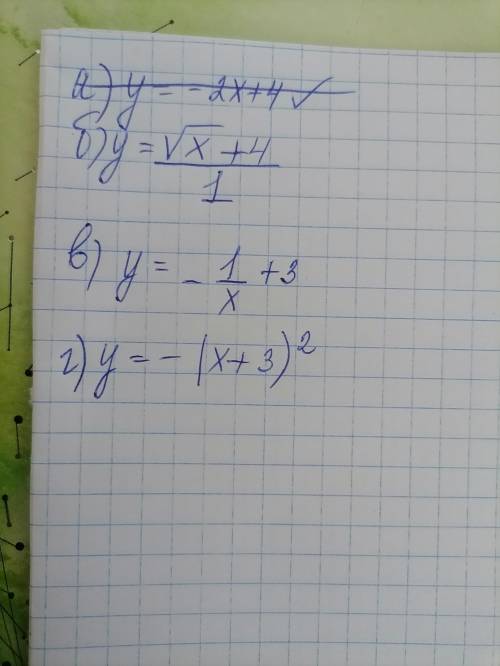 а) y = -2x+4 ✓
б) y = (√x + 4)/1
в) y = - 1/x + 3
г) y = - (x+3)²